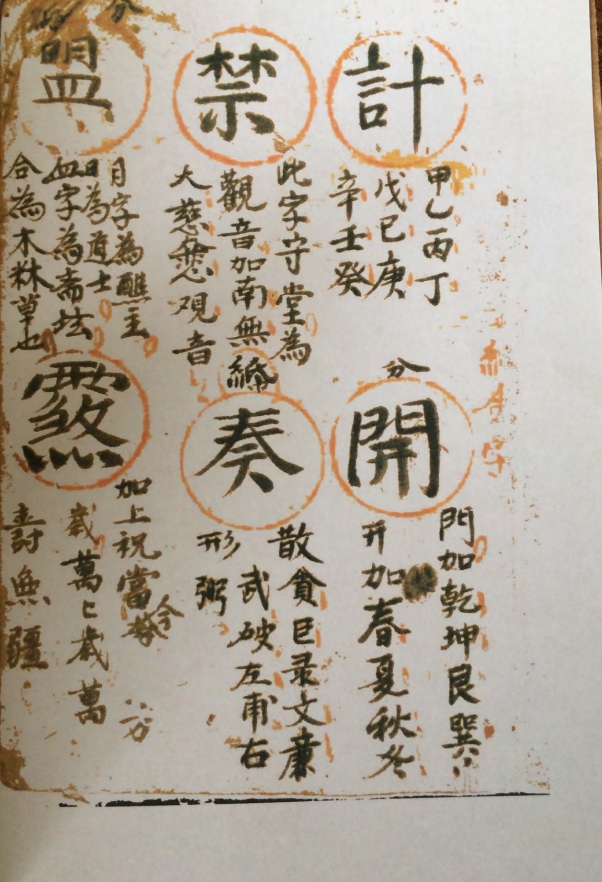 計
甲乙丙丁
戊己庚
辛壬癸
禁
此字守堂為
觀音加南無
大慈悲观音
盟
月字為醮主
日為道士
血字為斋坛
合為木林草也
分
開
門加乾坤艮巽
开加春夏秋冬
締
奏
散貪巨录文廉
武破左甫右
形粥
加上祝當今
歲萬〻歲萬
壽無疆